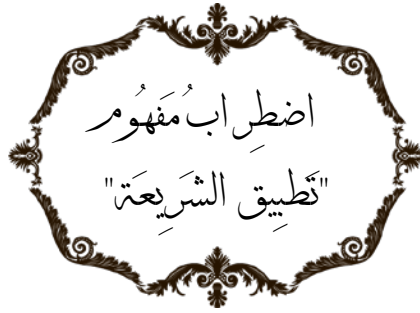 اضطِرابُ مَفهُوم
"تَطبِيق الشَرِيعَة"